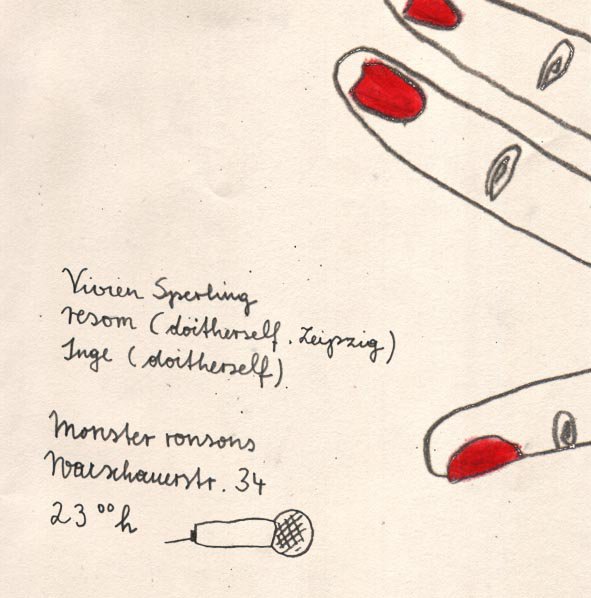 Vivien Sperling
resom (doitherself. Leipzig)
Inge (doitherself)
Monster ronsons
Warschauerstr. 34
23 ºº h